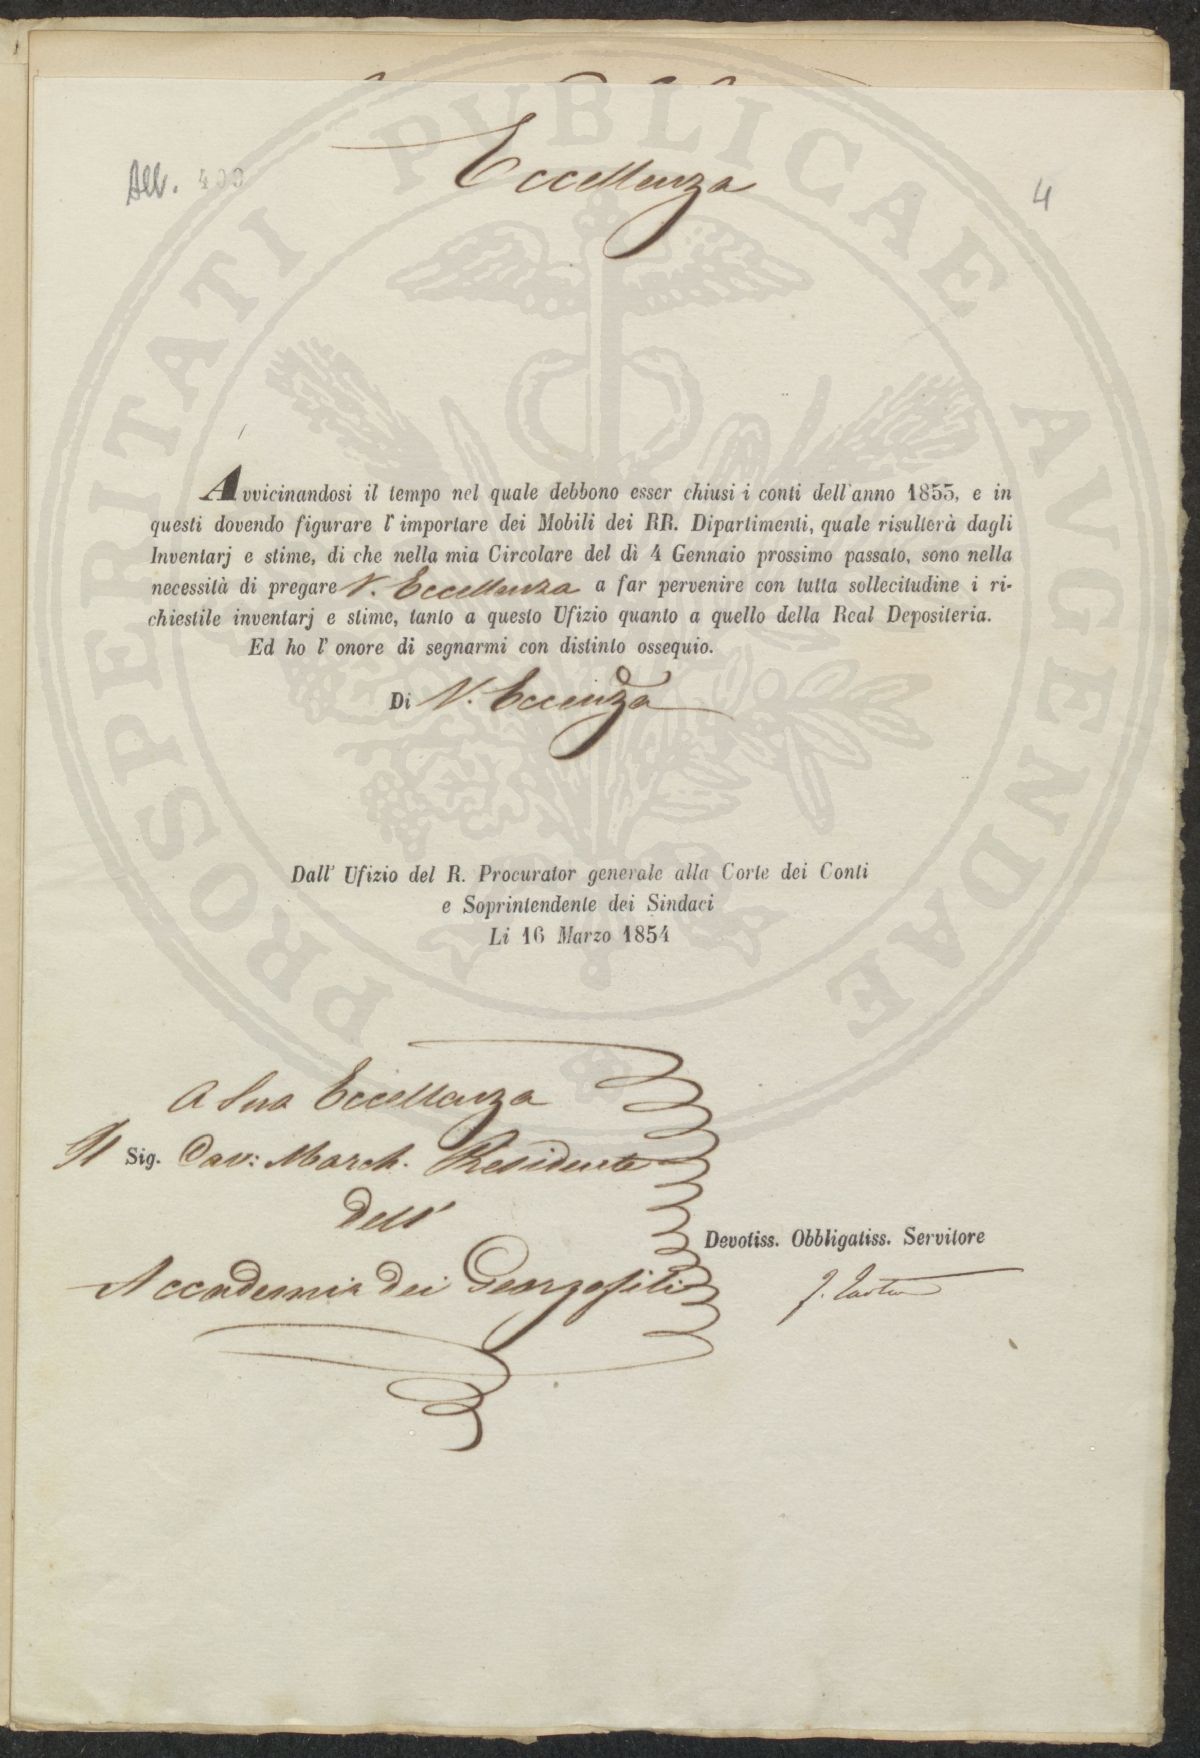 PROSPERITATI PUBLICAE AVGENDAE
Eccellenza
4
Avvicinandosi il tempo nel quale debbono esser chiusi i conti dell'anno 1853, e in
questi dovendo figurare l'importare dei Mobili dei RR. Dipartimenti, quale risulterà dagli
Inventarj e stime, di che nella mia Circolare del dì 4 Gennaio prossimo passato, sono nella
necessità di pregare V. Eccellenza a far pervenire con tutta sollecitudine i ri-
chiestile inventarj e stime, tanto a questo Ufizio quanto a quello della Real Depositeria.
Ed ho l'onore di segnarmi con distinto ossequio.
Di V. Eccenza
Dall' Ufizio del R. Procurator generale alla Corte dei Conti
e Soprintendente dei Sindaci
Li 16 Marzo 1854
A Sua Eccellenza
Il Sig. Cav: March. Presidente
dell'
Accademia dei Georgofili
Devotiss. Obbligatiss. Servitore